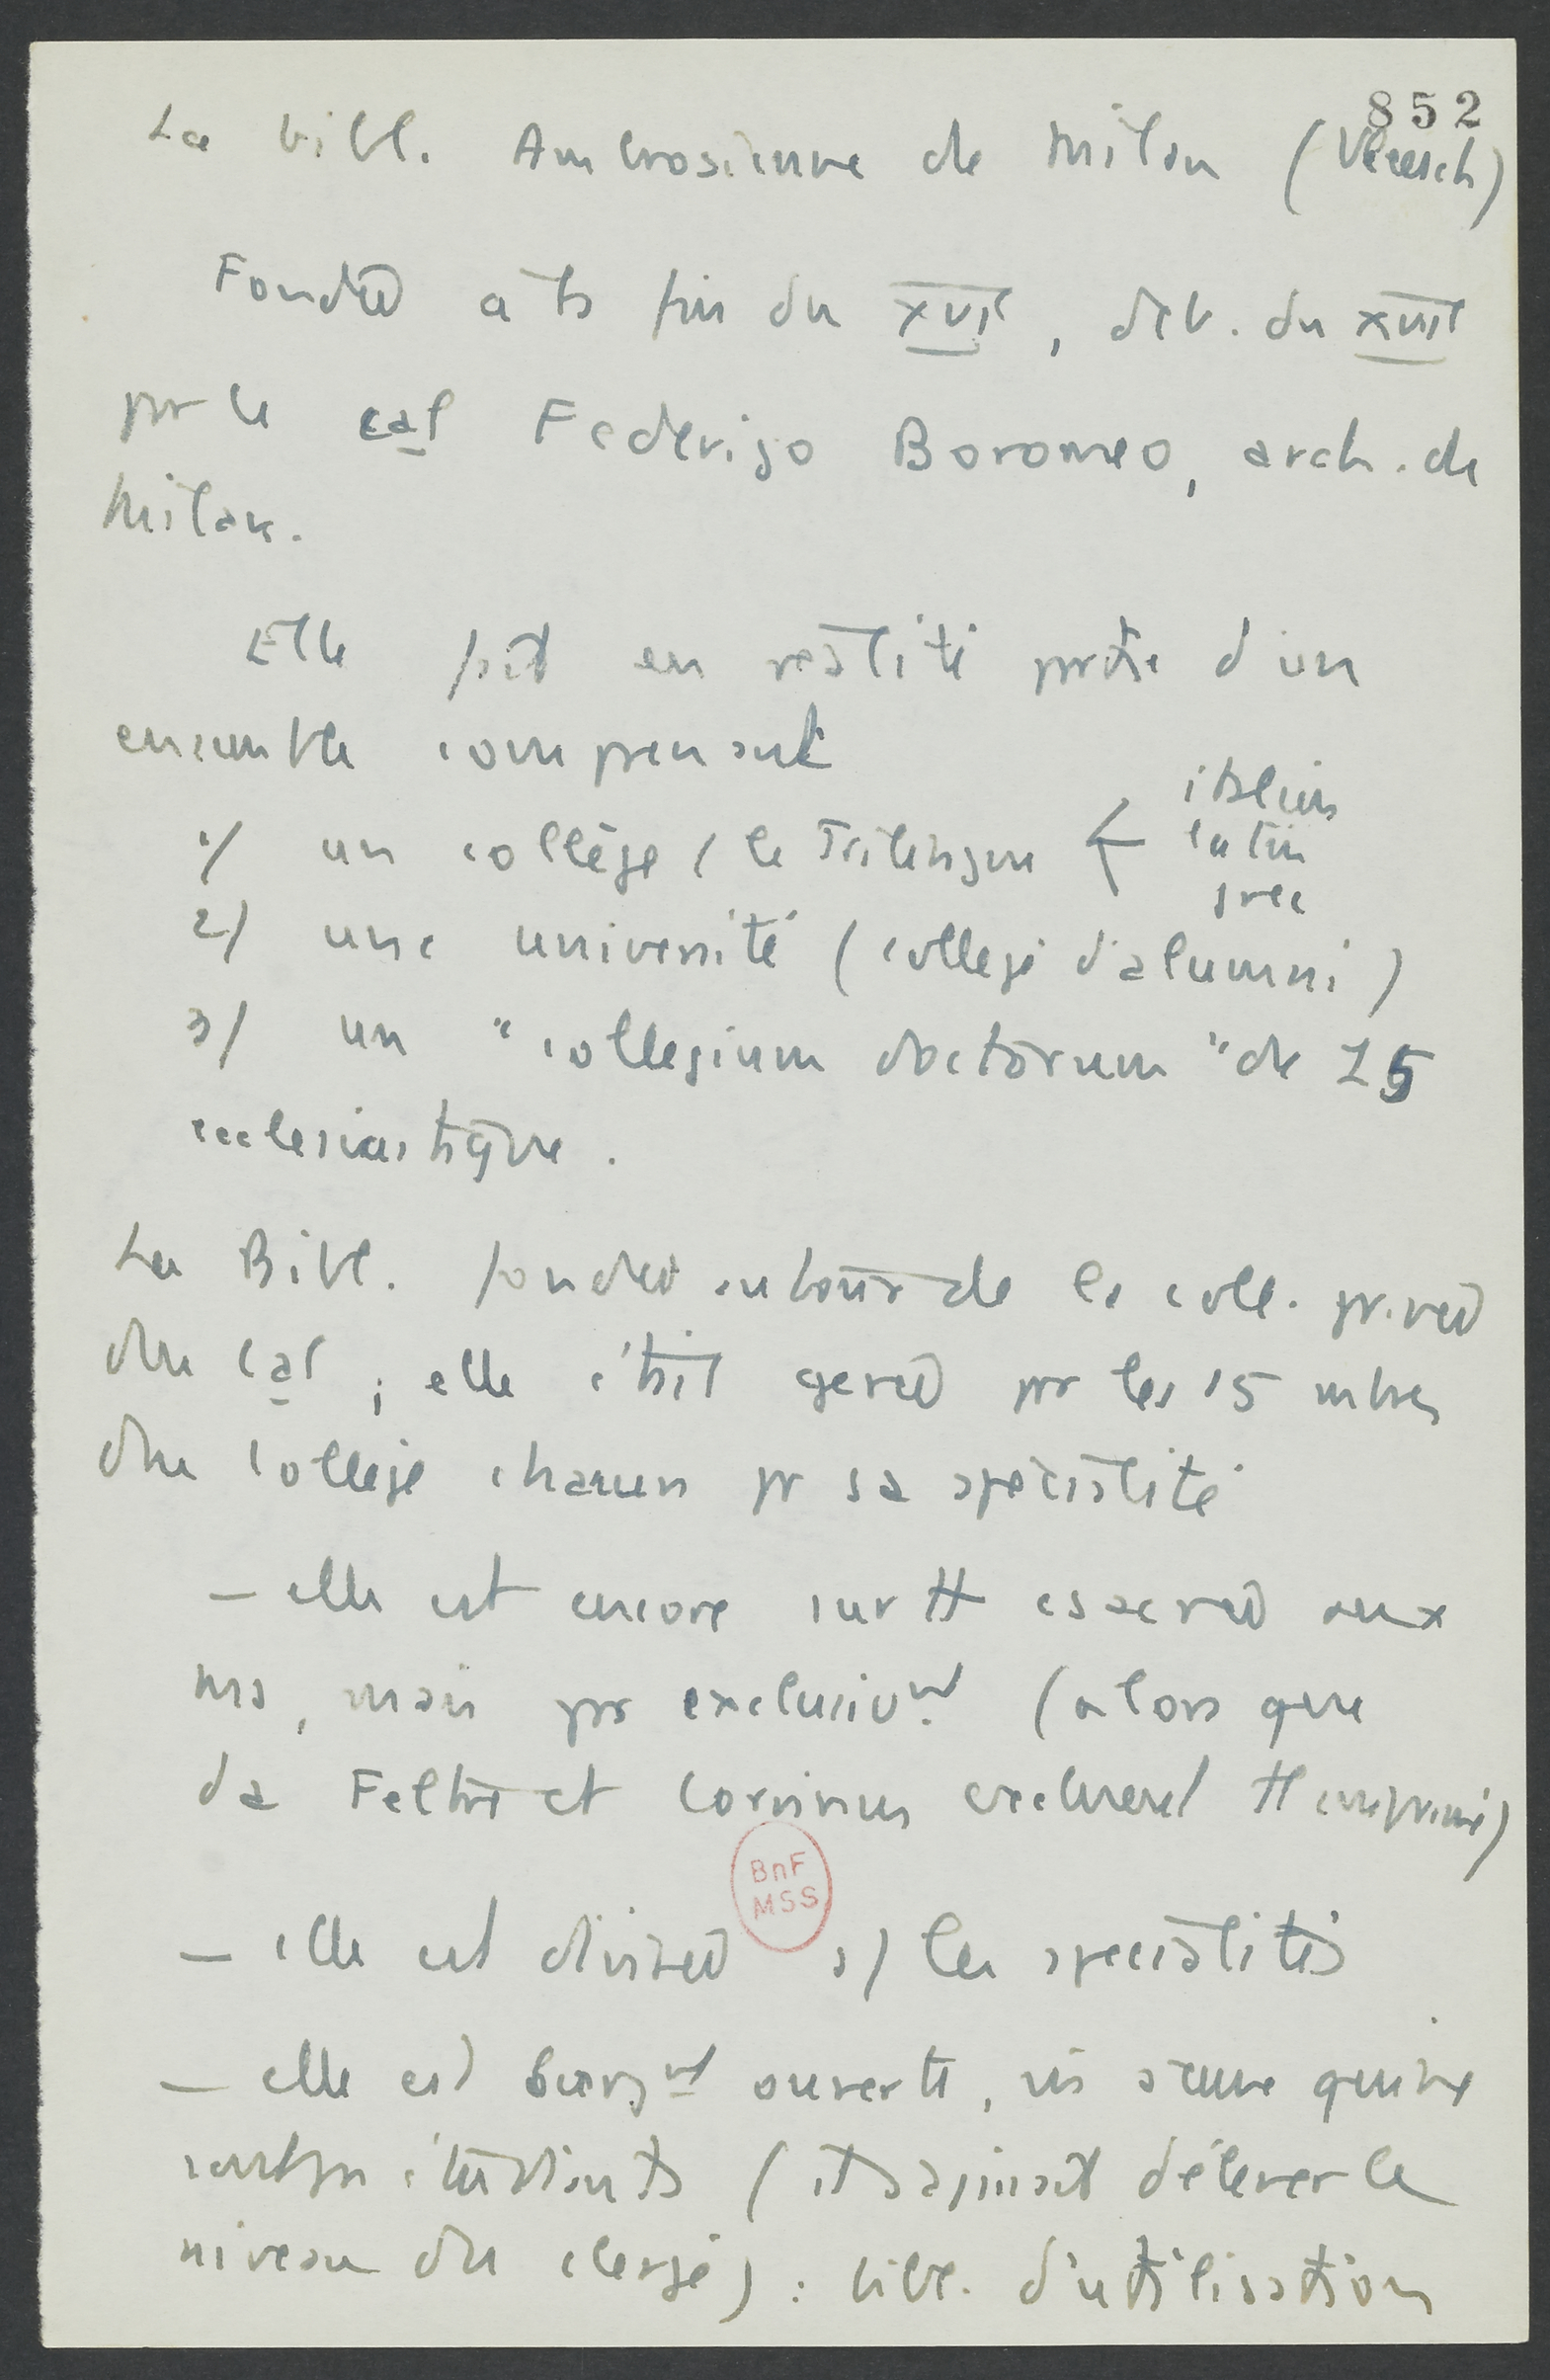 852
La bibl. Ambrosienne de Milan
Fondée à la fin du XVIe, déb. du XVIIe
par le cal Federigo Boromeo, arch. de
Milan.
Elle fait en réalité partie d'un
ensemble comprenant
1/ un collège (le Trilingue < italien
latin
grec
2/ une université (collège d'alumni)
3/ un "collegium doctorum" de 15
ecclésiastique.
La Bibl. fondée autour de la coll. privée
du cal ; elle était gérée par les 15 mbres
du collège chacun pr sa spécialité
– elle est encore surtt csacrée aux
ms, mais pas exclusivmt (alors que
da Feltre et Corvinus excluaient tt imprimé)
– elle est divisée s/ les spécialités
– elle est largmt ouverte,
étudiants (il s'agissait d'élever le
niveau du clergé) : bibl. d'utilisation
BnF
MSS